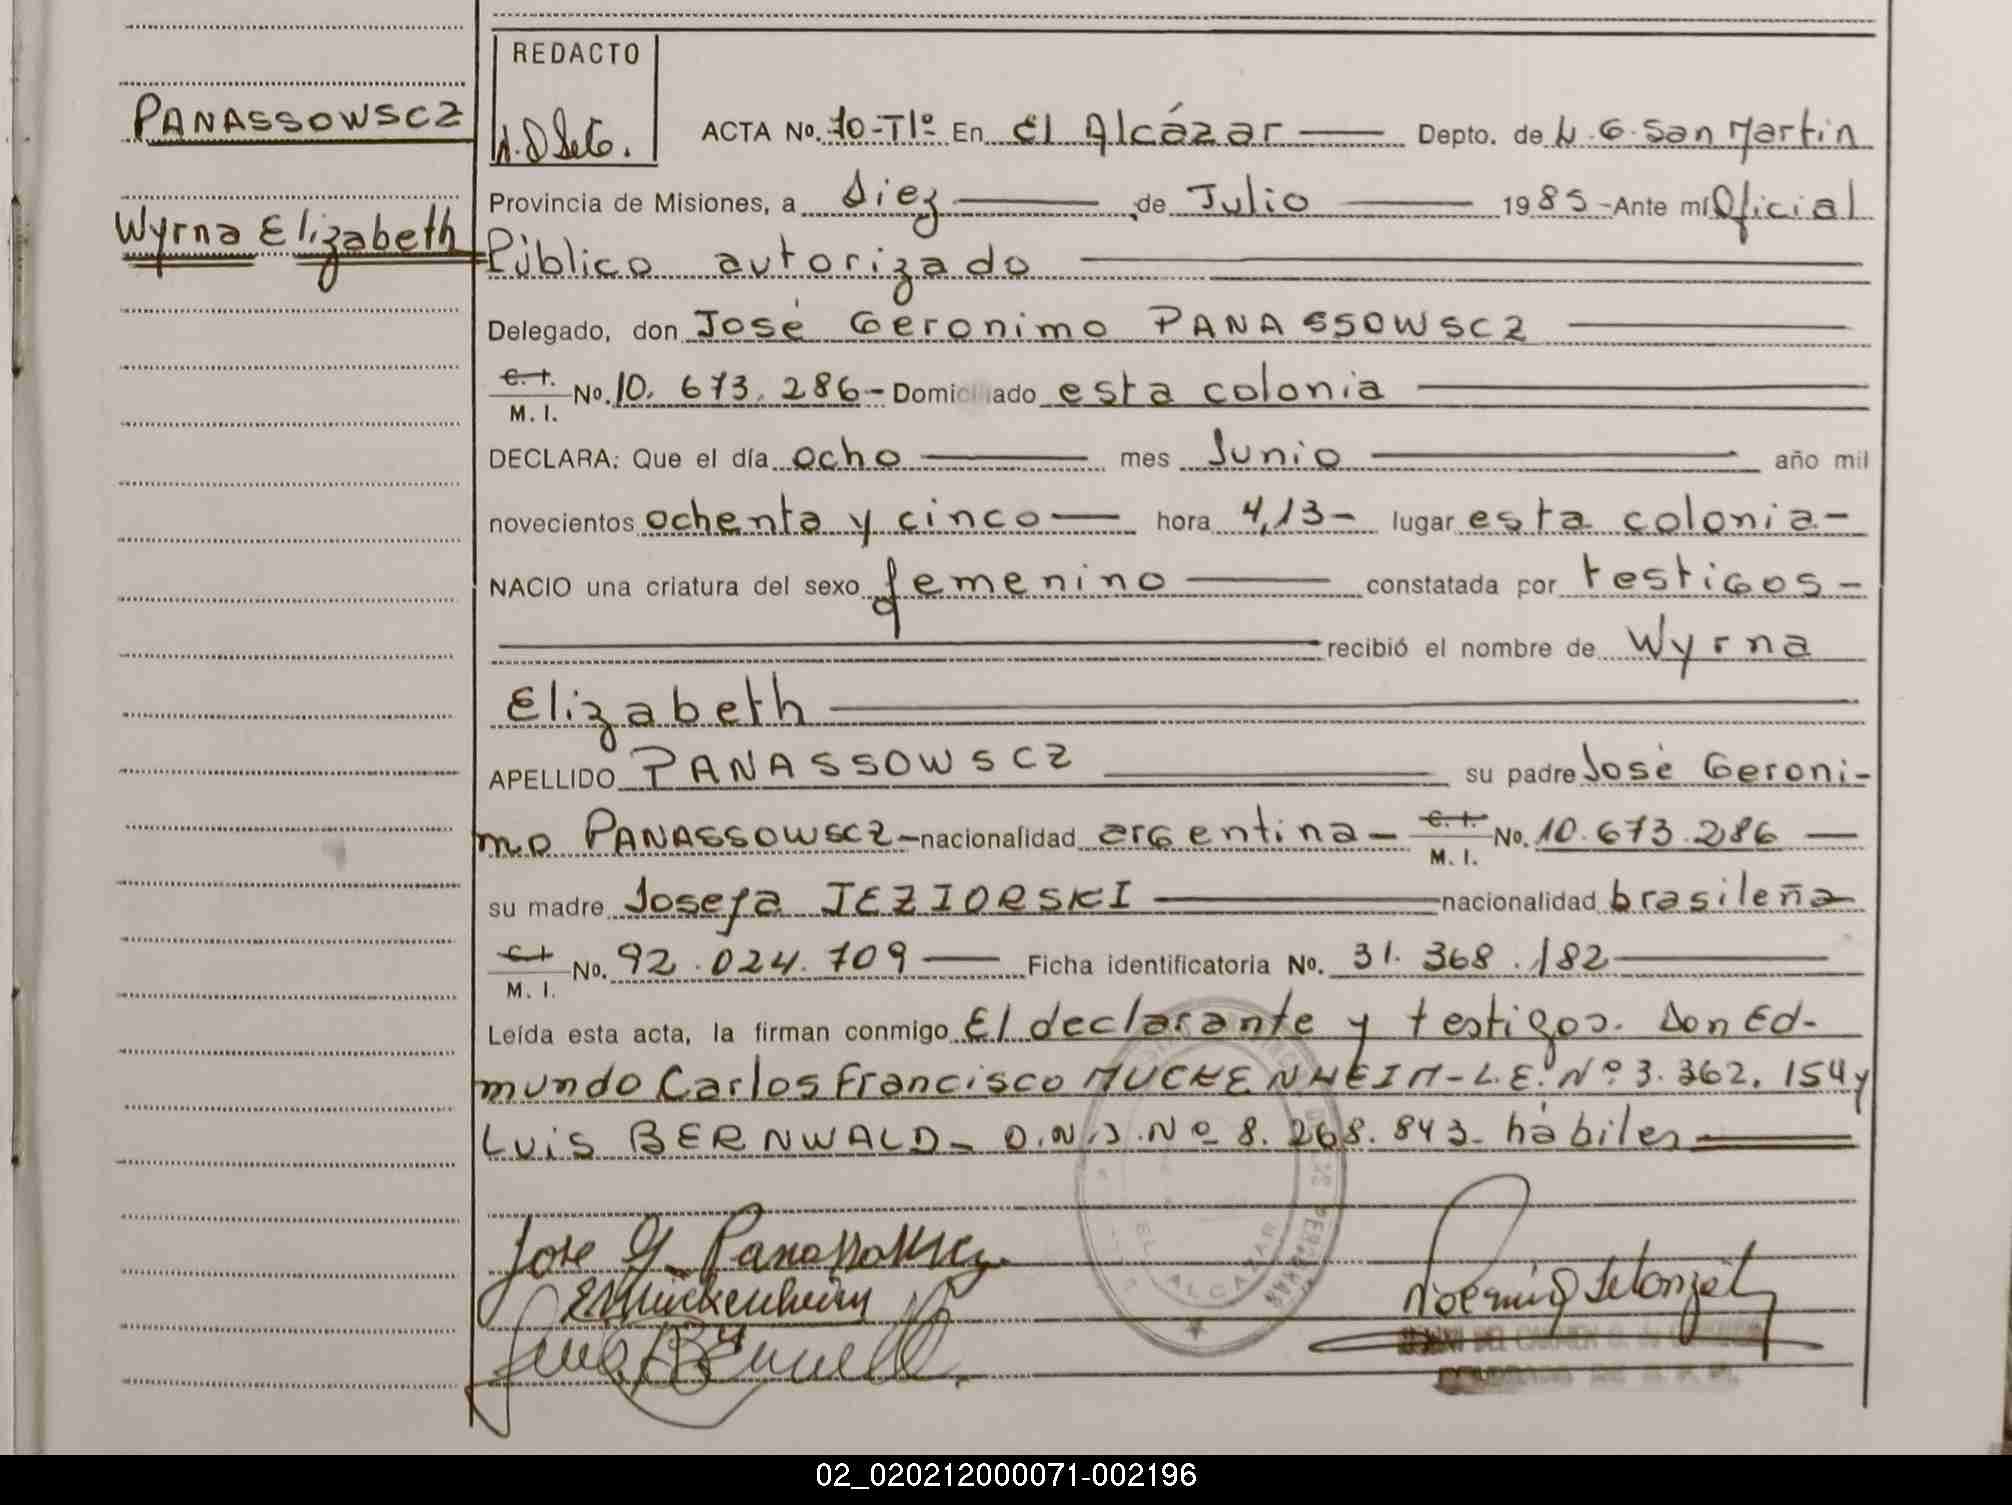 REDACTO
PANASSOWSCZ
Wyrna Elizabeth
ACTA No. 70-T1º En El Alcázar Depto. de L. G. San Martin
Provincia de Misiones, a diez de Julio 1985 - Ante mí Oficial
Público autorizado
Delegado, don José Geronimo PANASSOWSCZ
C. I. M. I. No. 10. 673. 286 - Domiciliado esta colonia
DECLARA: Que el día ocho mes Junio año mil
novecientos ochenta y cinco hora 4,13 - lugar esta colonia -
NACIO una criatura del sexo femenino constatada por testigos -
recibió el nombre de Wyrna
Elizabeth
APELLIDO PANASSOWSCZ su padre José Geroni-
mo PANASSOWSCZ - nacionalidad argentina - C. I. M. I. No. 10.673.286
su madre Josefa JEZIORSKI nacionalidad brasileña
C. I. M. I. No. 92.024.709 Ficha identificatoria No. 31.368.182
Leída esta acta, la firman conmigo El declarante y testigos. Don Ed-
mundo Carlos Francisco MUCKENHEIM - L.E. Nº 3.362.154 y
Luis BERNWALD - D.N.I. Nº 8.268.843 - hábiles
Jose G. Panassowscz
EMuckenheim
EL ALCAZAR
02_020212000071-002196